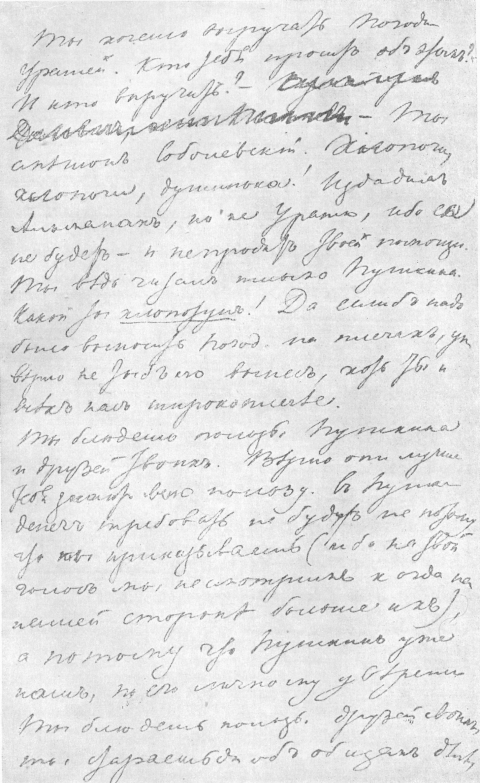 Ты хочешь выручать Погоди
Уранией. Кто тебя просит объ этомъ? –
И кто выручать? –
– Ты
смѣшонъ Соболевскій. Хлопочи,
хлопочи, душинька! Издадимъ
Альманахъ, но не Уранію, ибо ея
не будетъ – и не просятъ твоей помощи.
Ты вѣдь читалъ только Пушкина.
Какой ты хлопотунъ! Да если бъ надо
было выносить Погод. на плечахъ, ужъ
вѣрно не ты бъ его вынесъ, хоть ты и
всѣхъ насъ широкоплечѣе.
Ты блюдешь пользы Пушкина
и друзей твоихъ. Вѣрно они лучше
тебя знаютъ свою пользу. Съ Пушк
денегъ требовать не будутъ не потому
что ты приказываешь (ибо на твой
голосъ мы не смотримъ когда на
нашей сторонѣ больше ихъ),
а потому что Пушкинъ уже
намъ, по его личному увѣренію
Ты блюдешь пользы друзей своихъ
ты стараешься объ общемъ дѣлѣ,